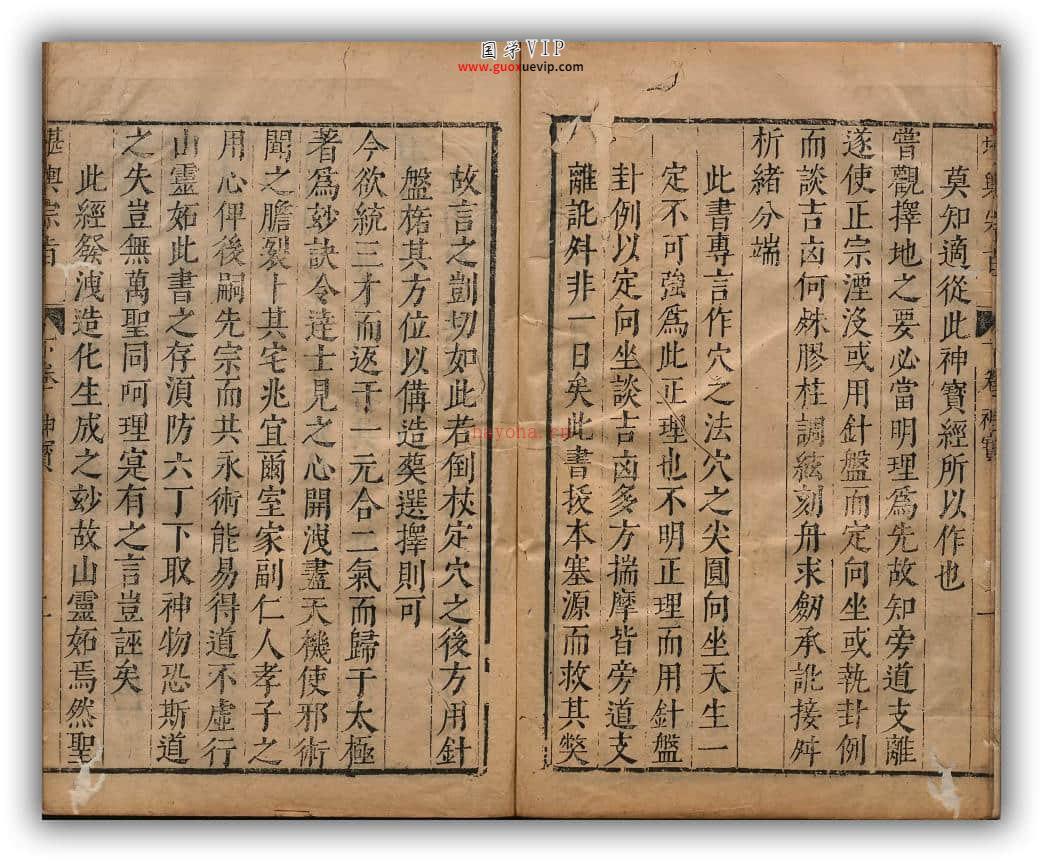 国学VIP
www.guoxuevip.com
莫知適從此神寶經所以作也
嘗觀擇地之要必當明理爲先故知旁道支離
遂使正宗湮没或用針盤而定向坐或執卦例
而談吉凶何殊膠柱調絃刻舟求劒承訛接舛
析緒分端
此書專言作穴之法穴之尖圓向坐天生一
定不可強爲此正理也不明正理而用針盤
卦例以定向坐談吉凶多方揣摩皆旁道支
離訛舛非一日矣此書拔本塞源而救其獘
故言之剴切如此若倒杖定穴之後方用針
盤楉其方位以備造葵選擇則可
今欲統三才而返于一元合二氣而歸于太極
著爲玅訣令達士見之心開洩盡天機使邪術
聞之膽裂卜其宅兆宜爾室家副仁人孝子之
用心俾後嗣先宗而共永術能易得道不虚行
山靈妬此書之存湏防六丁下取神物恐斯道
之失豈無萬聖同呵理寔有之言豈誣矣
此經發洩造化生成之玅故山靈妬焉然聖
堪輿宗旨
下卷
神寶
二
卷
神寶
一